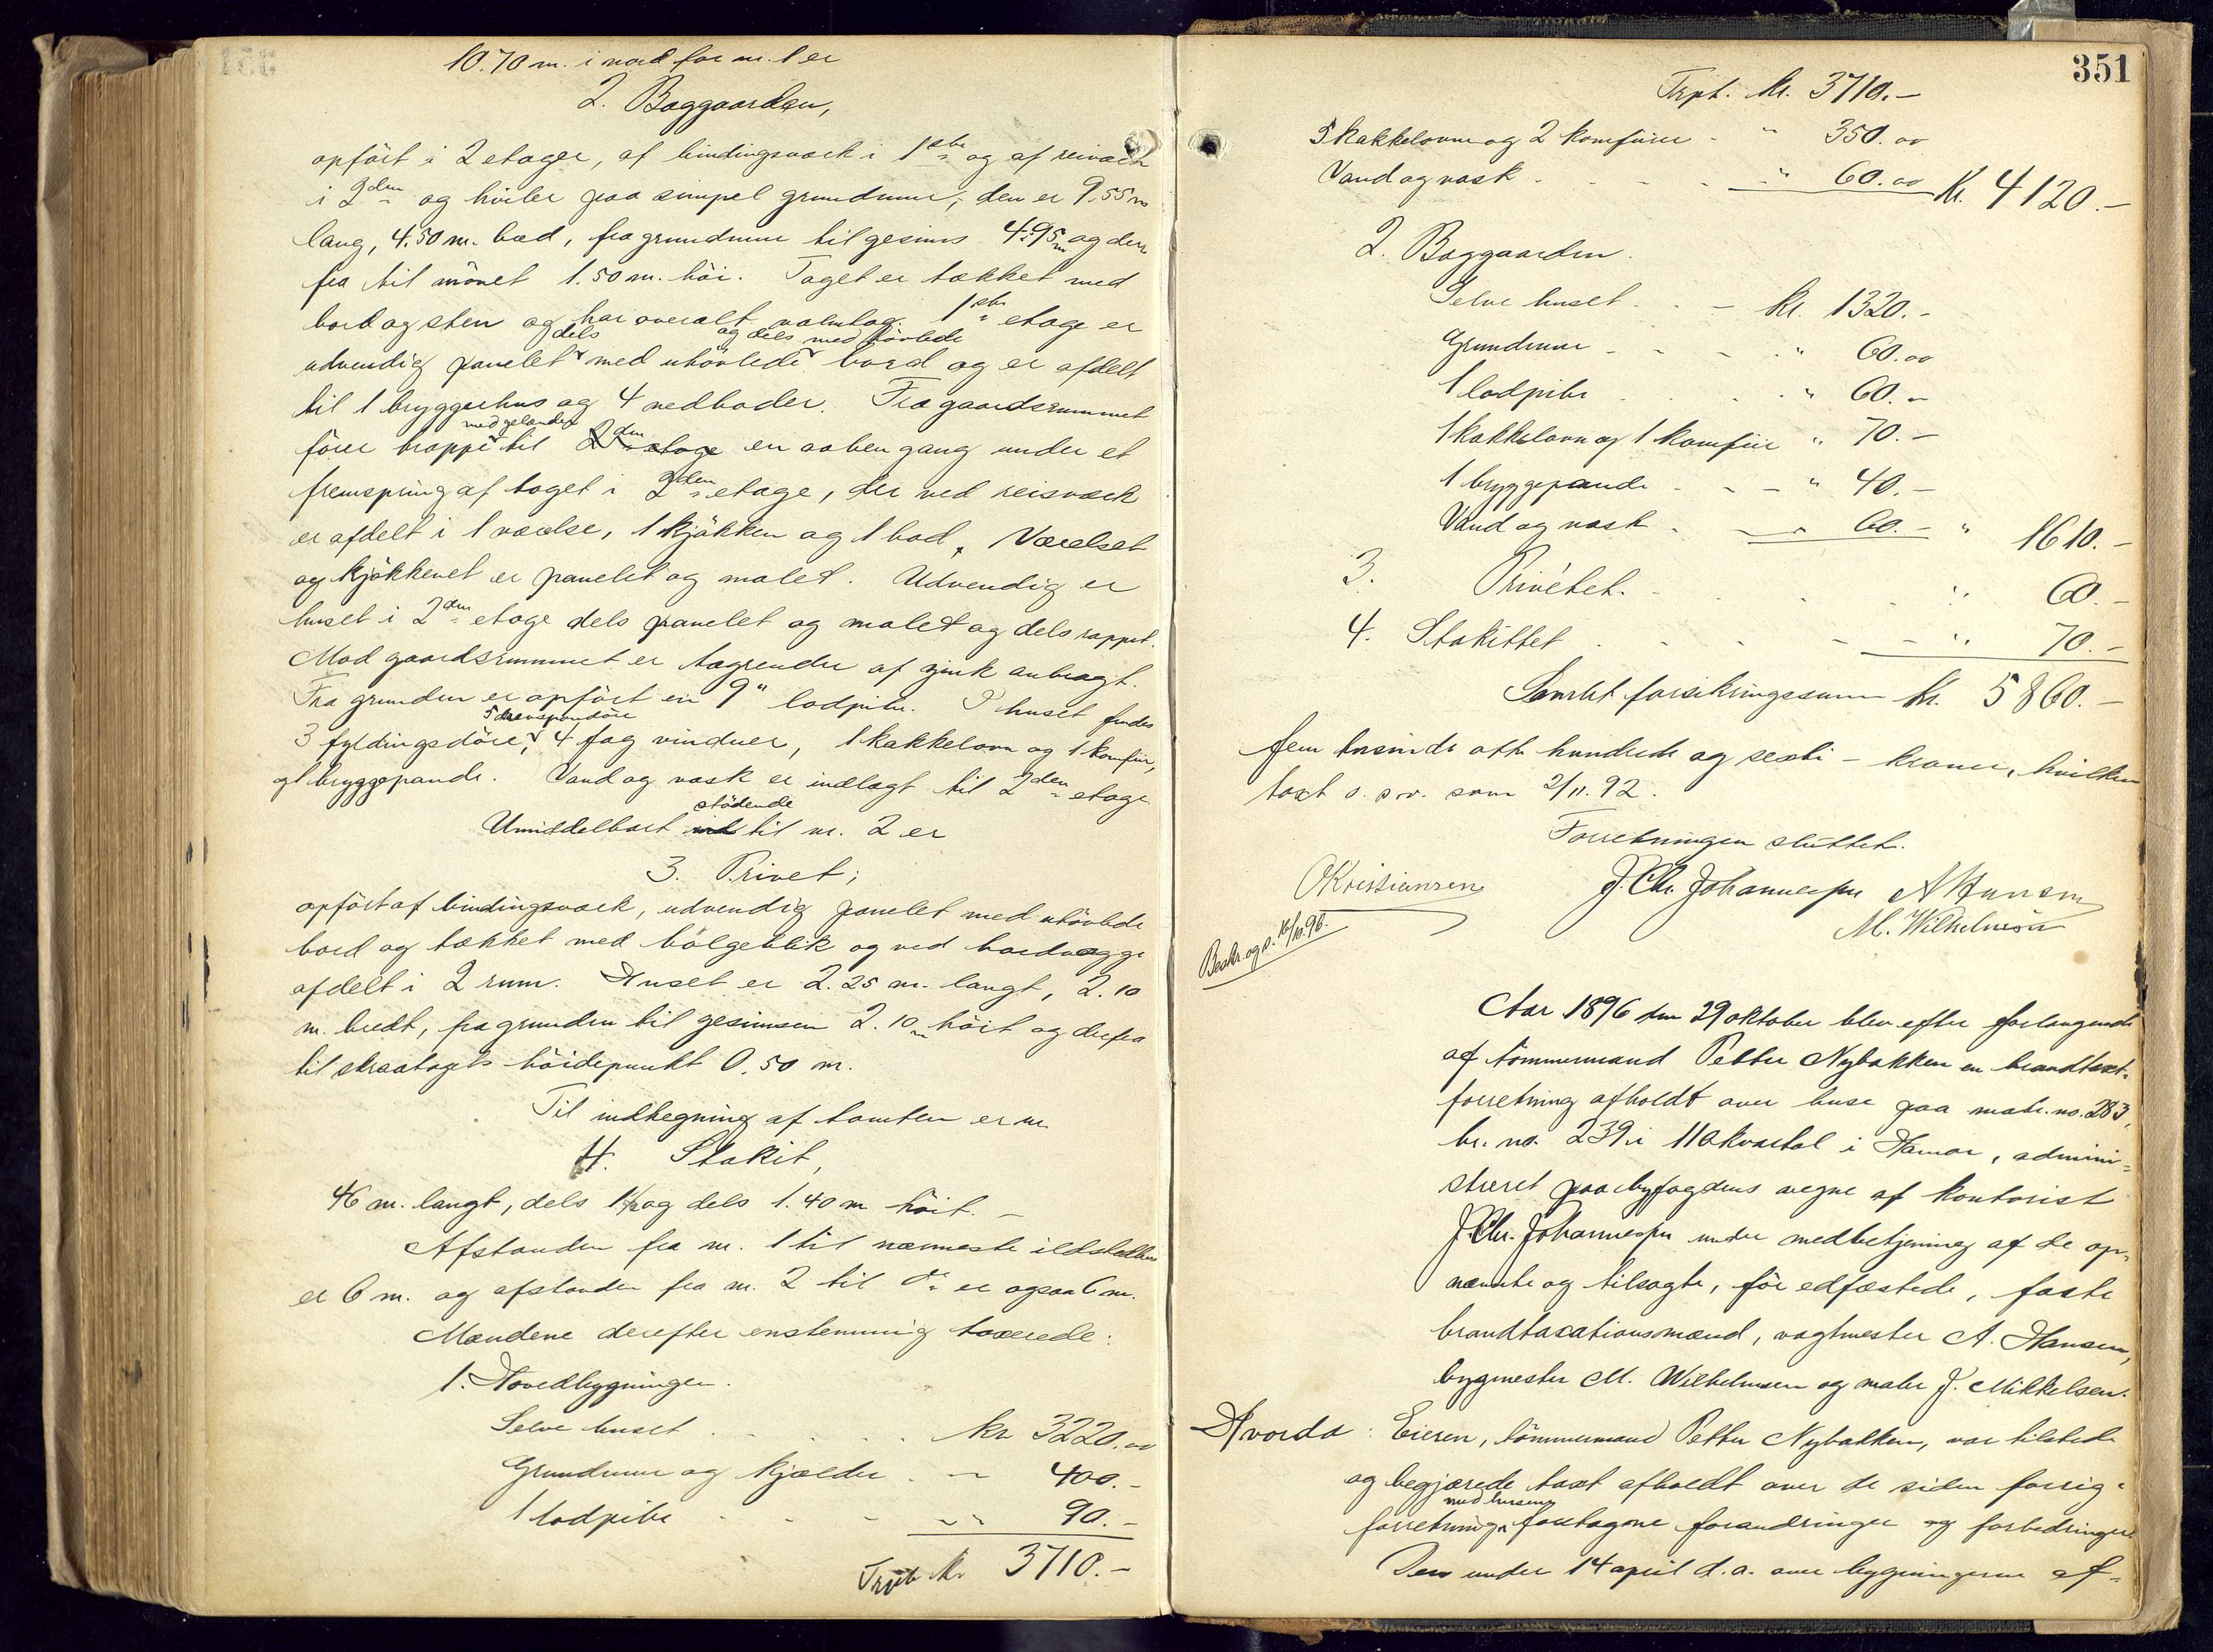 10.70 m. i nord for nr. 1 er
2. Baggaarden,
opført i 2 etager, af bindingsværk i 1ste og af reisværk
i 2den og hviler paa simpel grundmur; den er 9.55 m
lang, 4.50 m. bred, fra grundmur til gesims 4.95 m og der-
fra til mønet 1.50 m. høi. Taget er tækket med
bord og sten og har overalt valmtag. 1ste etage er
dels og dels med høvlede
udvendig panelet med uhøvlede bord og er afdelt
til 1 bryggerhus og 4 vedboder. Fra gaardsrummet
med gelænder
fører trappe til 2den etage en aaben gang under et
fremspring af taget i 2den etage, der ved reisværk
er afdelt i 1 værelse, 1 kjøkken og 1 bod. Værelset
og kjøkkenet er panelet og malet. Udvendig er
huset i 2den etage dels panelet og malet og dels rappet.
Mod gaardsrummet er tagrender af zink anbragt.
Fra grunden er opført en 9" lodpibe. I huset findes
5
3 fyldingsdøre, 4 fag vinduer, 1 kakkelovn og 1 komfür,
og 1 bryggepande. Vand og vask er indlagt til 2den etage
stødende
Umiddelbart til nr. 2 er
3. Privet;
opført af bindingsværk, udvendig panelet med uhøvlede
bord og tækket med bølgeblik og ved bordvægge
afdelt i 2 rum. Huset er 2.25 m. langt, 2.10
m. bredt, fra grunden til gesimsen 2.10 m høit og derfra
til skraatagets høidepunkt 0.50 m.
Til indhegning af tomten er nr.
4. Stakit,
46 m. langt, dels og dels 1.40 m høit. –
Afstanden fra nr. 1 til nærmeste ildsted
er 6 m. og afstanden fra nr. 2 til do er ogsaa 6 m.
Mændene derefter enstemmig taxerede:
1. Hovedbygningen.
Selve huset . . . . . kr 3220.00
Grundmur og kjælder . – 400.–
1 lodpibe - - - " 90.–
Trsp. kr. 3710.–
351
Trpt. kr. 3710.–
5 kakkelovne og 2 komfürer - " 350.00
Vand og vask . - - - " 60.00 Kr. 4120.–
2. Baggaarden.
Selve huset . . – kr. 1320.–
Grundmur - - - " 60.00
1 lodpibe . . . " 60.–
1 kakkelovn og 1 komfür " 70.–
1 bryggepande - - – " 40.–
Vand og vask . - " 60.– " 1610.–
3. Privétet. - . . . " 60.–
4. Stakittet . - - – – " 70.–
Samlet forsikringssum kr. 5860.–
fem tusinde otte hundrede og sexti – kroner, hvilken
taxt o. s. v. som 2/11.92.
Forretningen sluttet.
OKristiansen J. Chr. Johannessen A Hansen
M. Wilhelmsen
Beskr. og s. 16/10.96.
Aar 1896 den 29 oktober blev efter forlangende
af tømmermand Petter Nybakken en brandtaxt-
forretning afholdt over huse paa matr. no. 283,
br. no. 239 i 110 kvartal i Hamar, admini-
streret paa byfogdens vegne af kontorist
J. Chr. Johannessen under medbetjening af de op-
nævnte og tilsagte, før edfæstede, faste
brandtaxationsmænd, vagtmester A. Hansen,
bygmester M. Wilhelmsen og maler J. Mikkelsen.
Hvorda: Eieren, tømmermand Petter Nybakken, var tilstede
og begjærede taxt afholdt over de siden forrige
med husene
forretning foretagne forandringer og forbedringer.
Den under 14 april d. a. over bygningerne af-